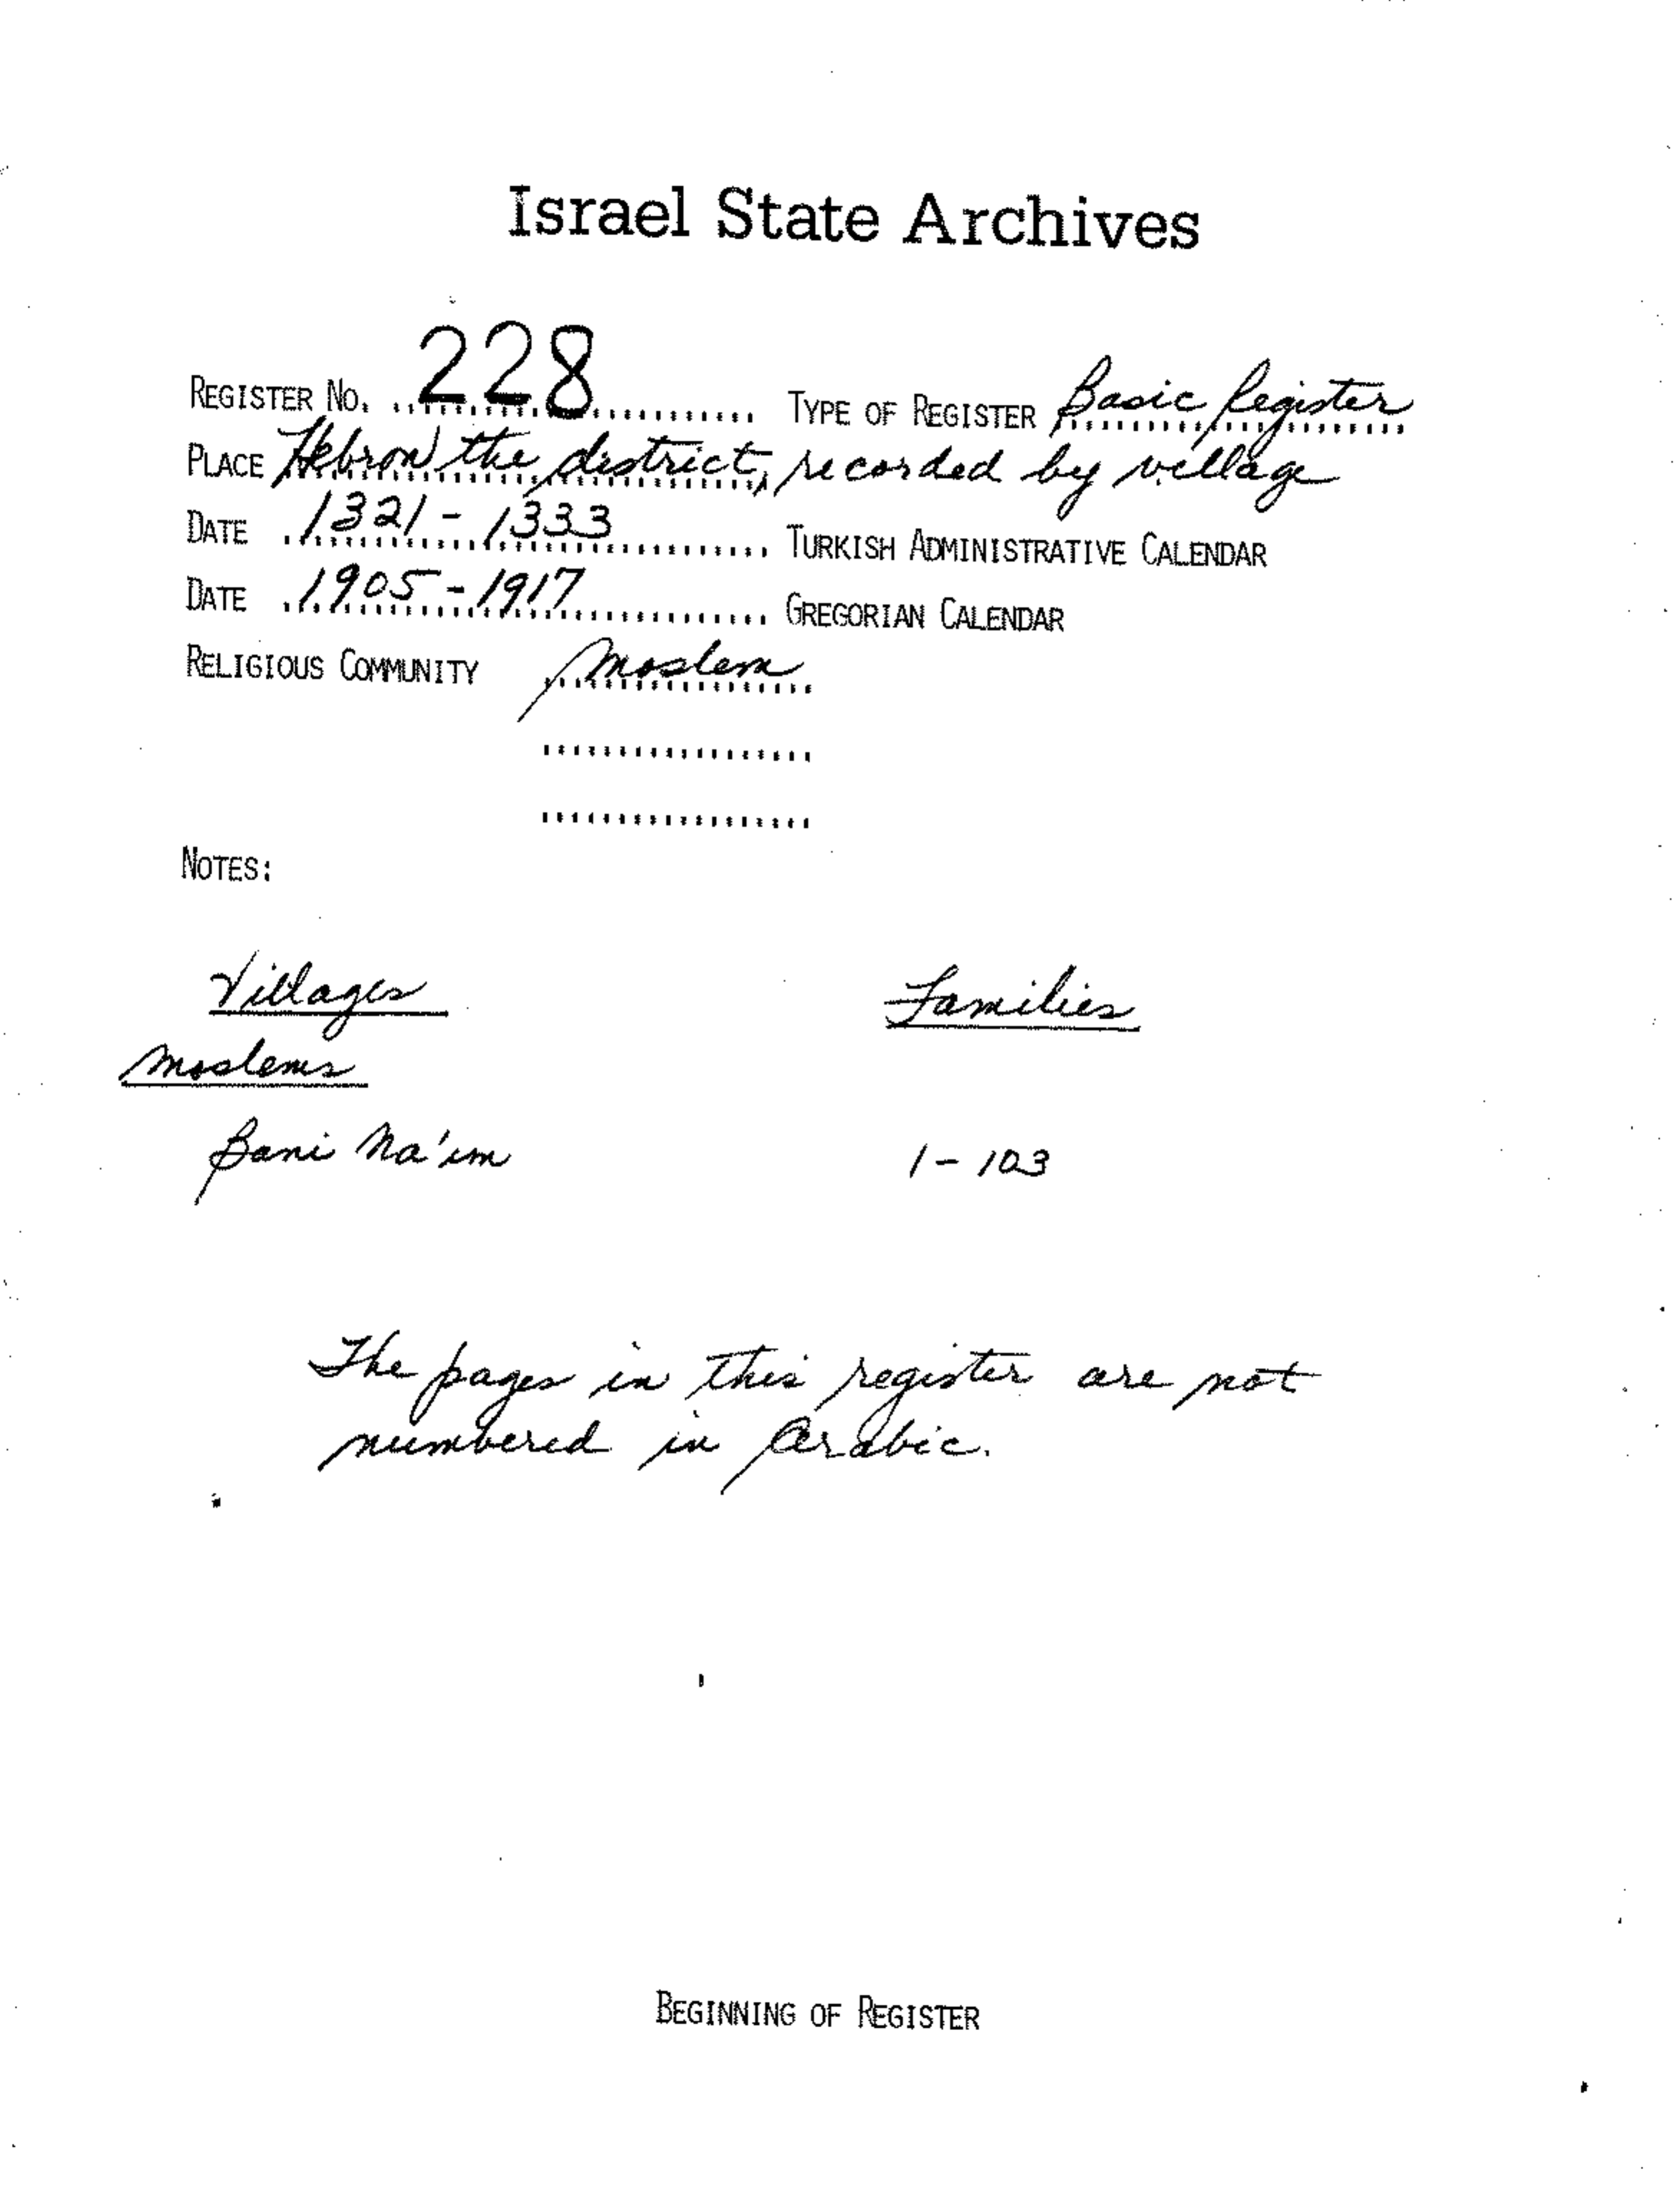 Israel State Archives
REGISTER NO. 228 TYPE OF REGISTER Basic Register
PLACE Hebron the district, recorded by village
DATE 1321 - 1333 TURKISH ADMINISTRATIVE CALENDAR
DATE 1905 - 1917 GREGORIAN CALENDAR
RELIGIOUS COMMUNITY Moslem
NOTES:
Villages Families
Moslems
Bani Na'im 1 - 103
The pages in this register are not
numbered in Arabic.
BEGINNING OF REGISTER